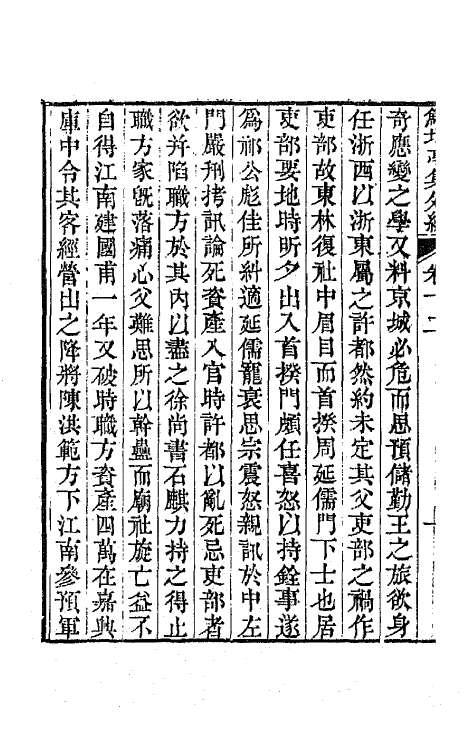 鮚埼亭集外編 卷十二
奇應變之學又料京城必危而思預儲勤王之旅欲身
任浙西以浙東屬之許都然約未定其父吏部之禍作
吏部故東林復社中眉目而首揆周延儒門下士也居
吏部要地時昕夕出入首揆門頗任喜怒以持銓事遂
爲祁公彪佳所糾適延儒寵衰思宗震怒親訊於中左
門嚴刑拷訊論死資產入官時許都以亂死忌吏部者
欲并陷職方於其內以盡之徐尚書石麒力持之得止
職方家旣落痛心父難思所以幹蠱而廟社旋亡益不
自得江南建國甫一年又破時職方資產四萬在嘉興
庫中令其客經營出之降將陳洪範方下江南參預軍